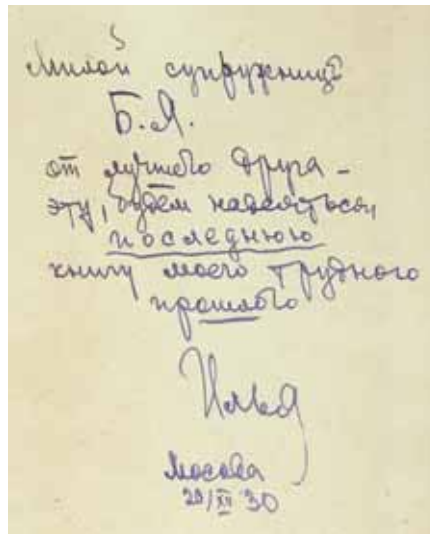 Милой супружнице
Б.Я.
от лучшего друга –
эту, будем надеяться,
последнюю
книгу моего трудного
прошлого
Илья
Москва
29/XII 30